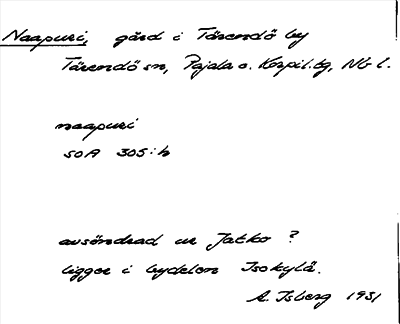 Naapuri, gård i Tärendö by
Tärendö sn, Pajala o. Korpil. tg, Nb l.
naapuri
SOA 305:h
avsöndrad ur Jatko ?
ligger i bydelen Isokylä.
A. Isberg 1931